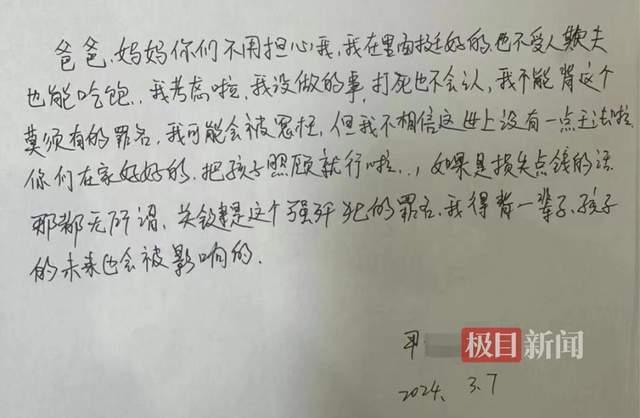 爸爸,妈妈你们不用担心我,我在里面挺好的,也不受人欺夫
也能吃饱..我考虑啦,我没做的事,打死也不会认,我不能背这个
莫须有的罪名,我可能会被冤枉,但我不相信这世上没有一点王法啦
你们在家好好的.把孩子照顾就行啦..,如果是损失点钱的话
那都无所谓,关键是这个强奸犯的罪名.我得背一辈子.孩子
的未来也会被影响的.
极目新闻
2024. 3.7